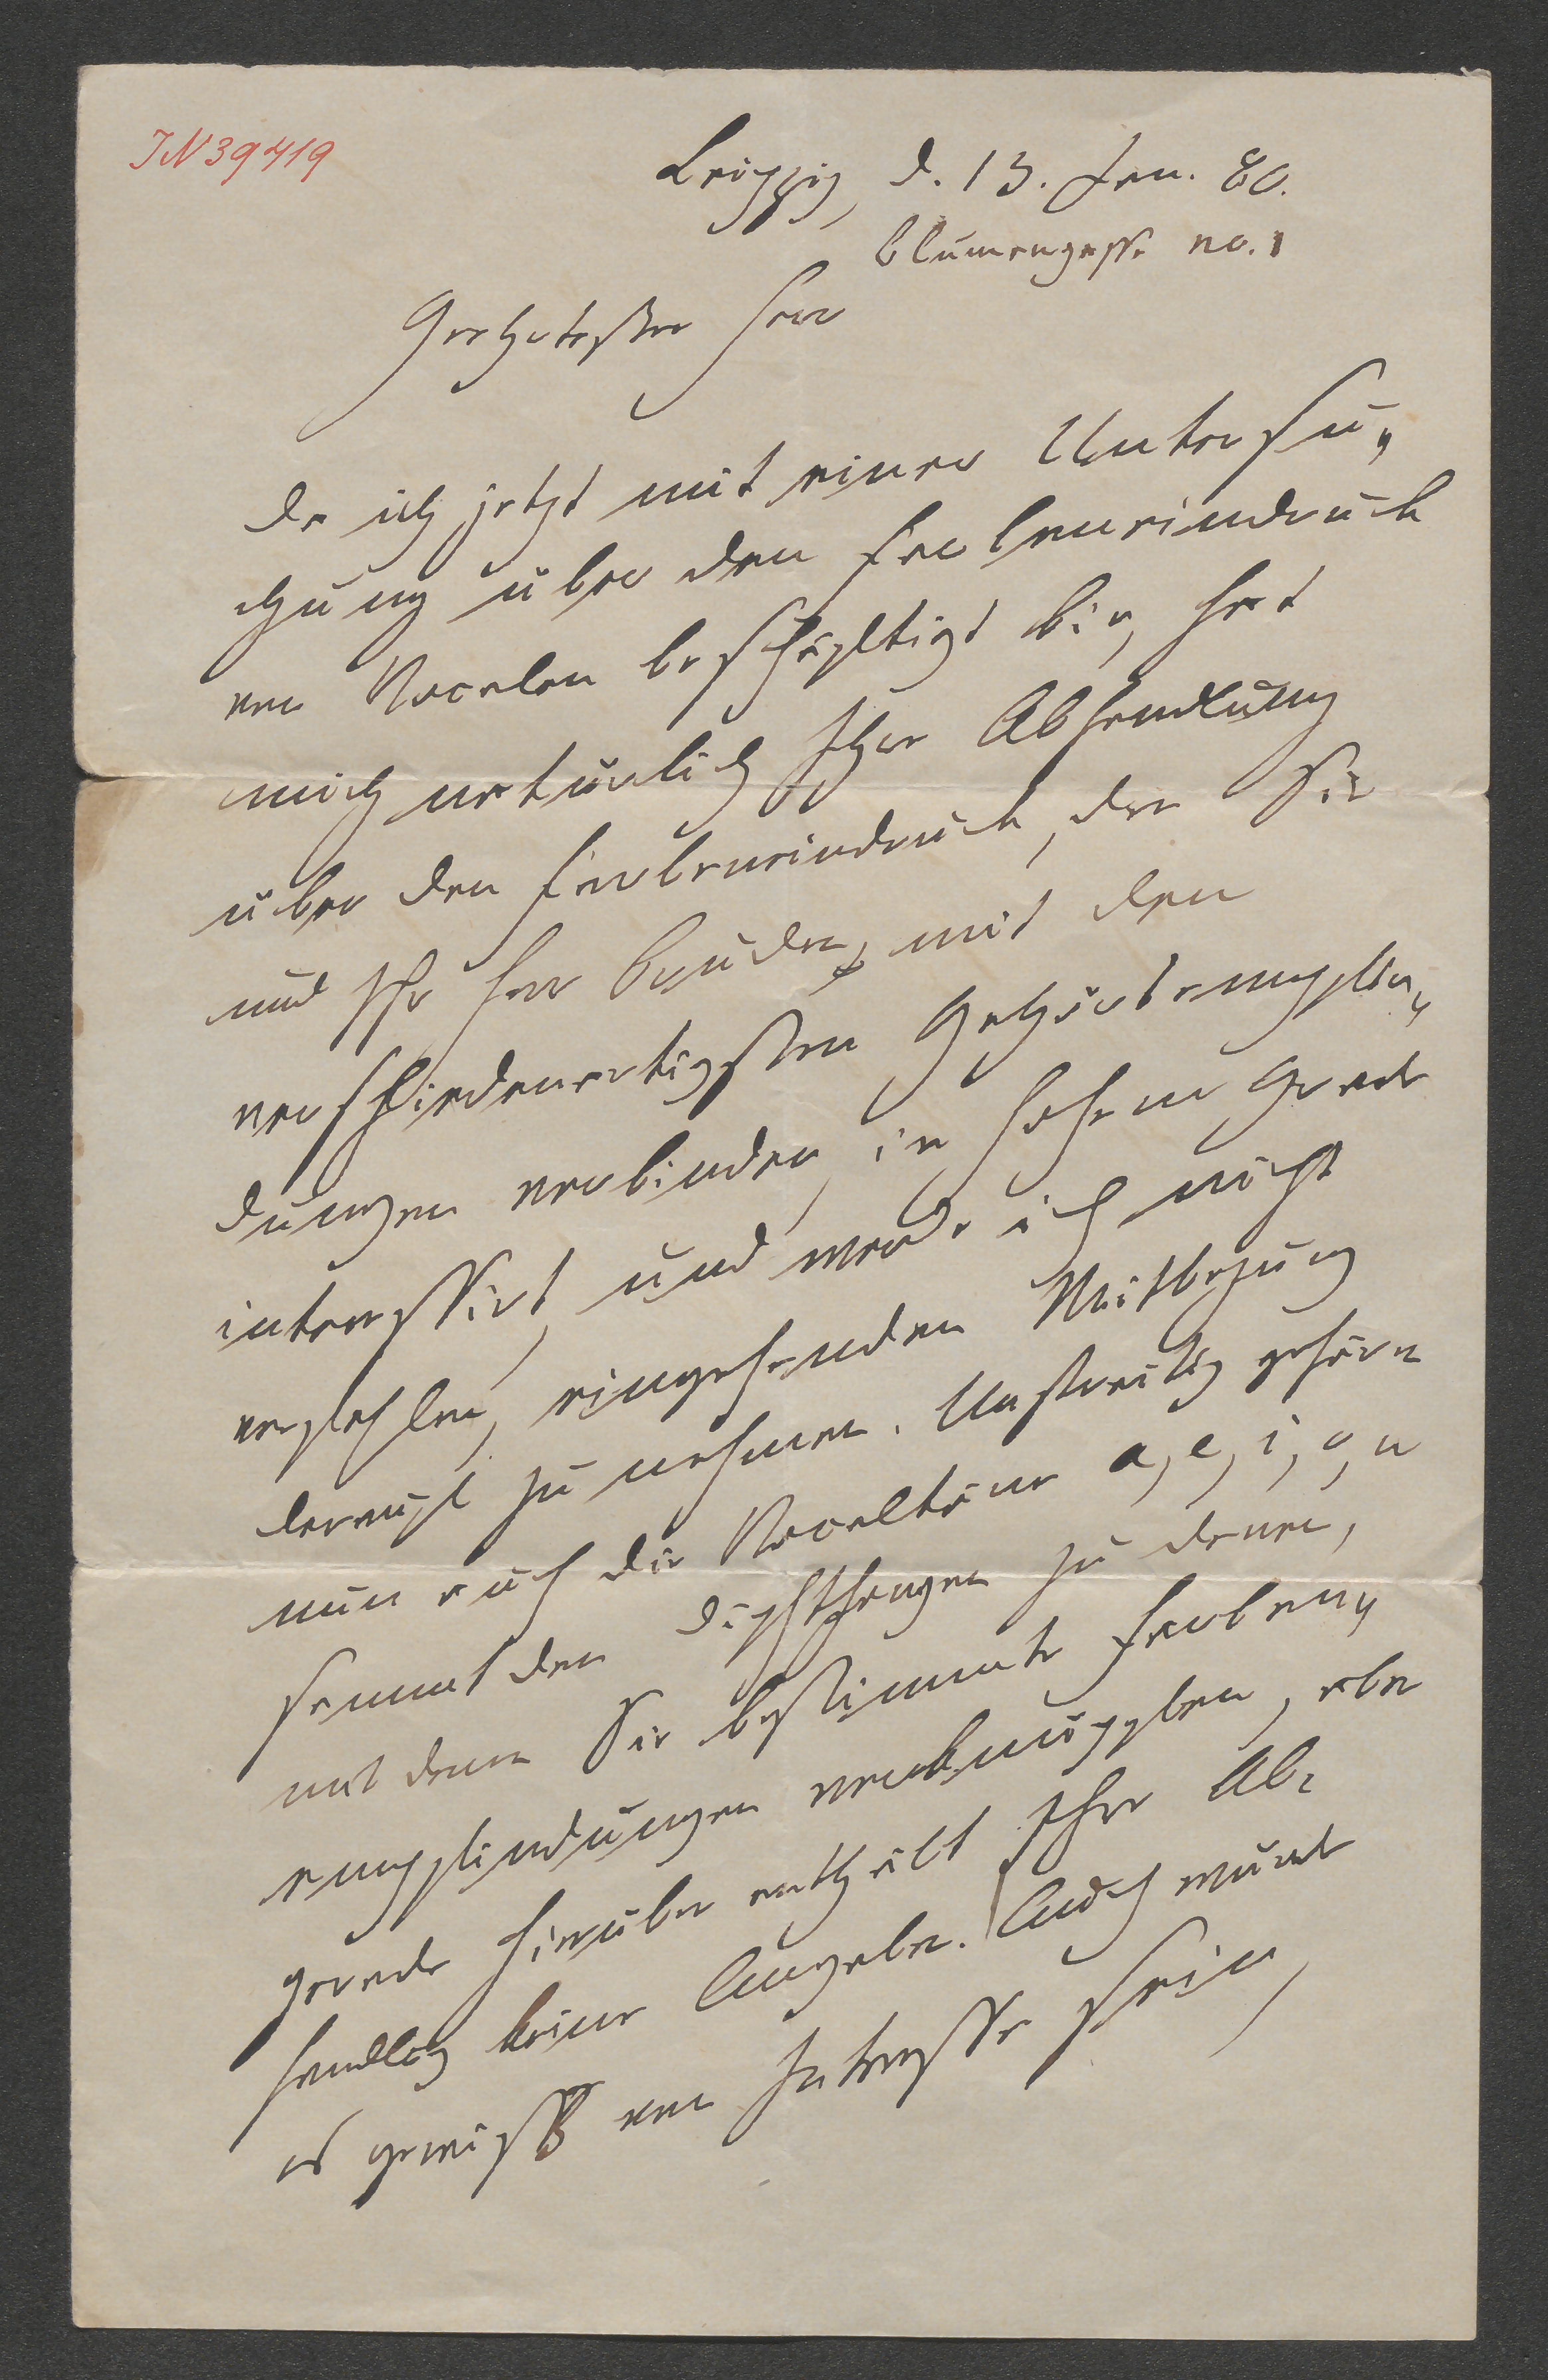 IN 39419
Leipzig, d. 13. Jan. 80.
Blumengasse no. 1
Geehrtester Herr
Da ich jetzt mit einer Untersu„
chung über den Farbeneindruck
von Vocalen beschäftigt bin, hat
mich natürlich Ihre Abhandlung
über den Farbeneindruck, den Sie
und Ihr Herr Bruder mit den
verschiedenartigsten Gehörsempfin„
dungen verbinden, in hohem Grade
interessirt, und werde ich nicht
verfehlen, eingehenden Mitbezug
darauf zu nehmen. Unstreitig gehören
nun auch die Vocaltöne a, e, i, o, u
sammt den Diphthongen zu denen,
mit denen Sie bestimmte Farben„
empfindungen verknüpfen, aber
gerade hierüber enthält Ihre Ab-
handlg keine Angabe. Auch würde
es gewiß von Interesse sein,